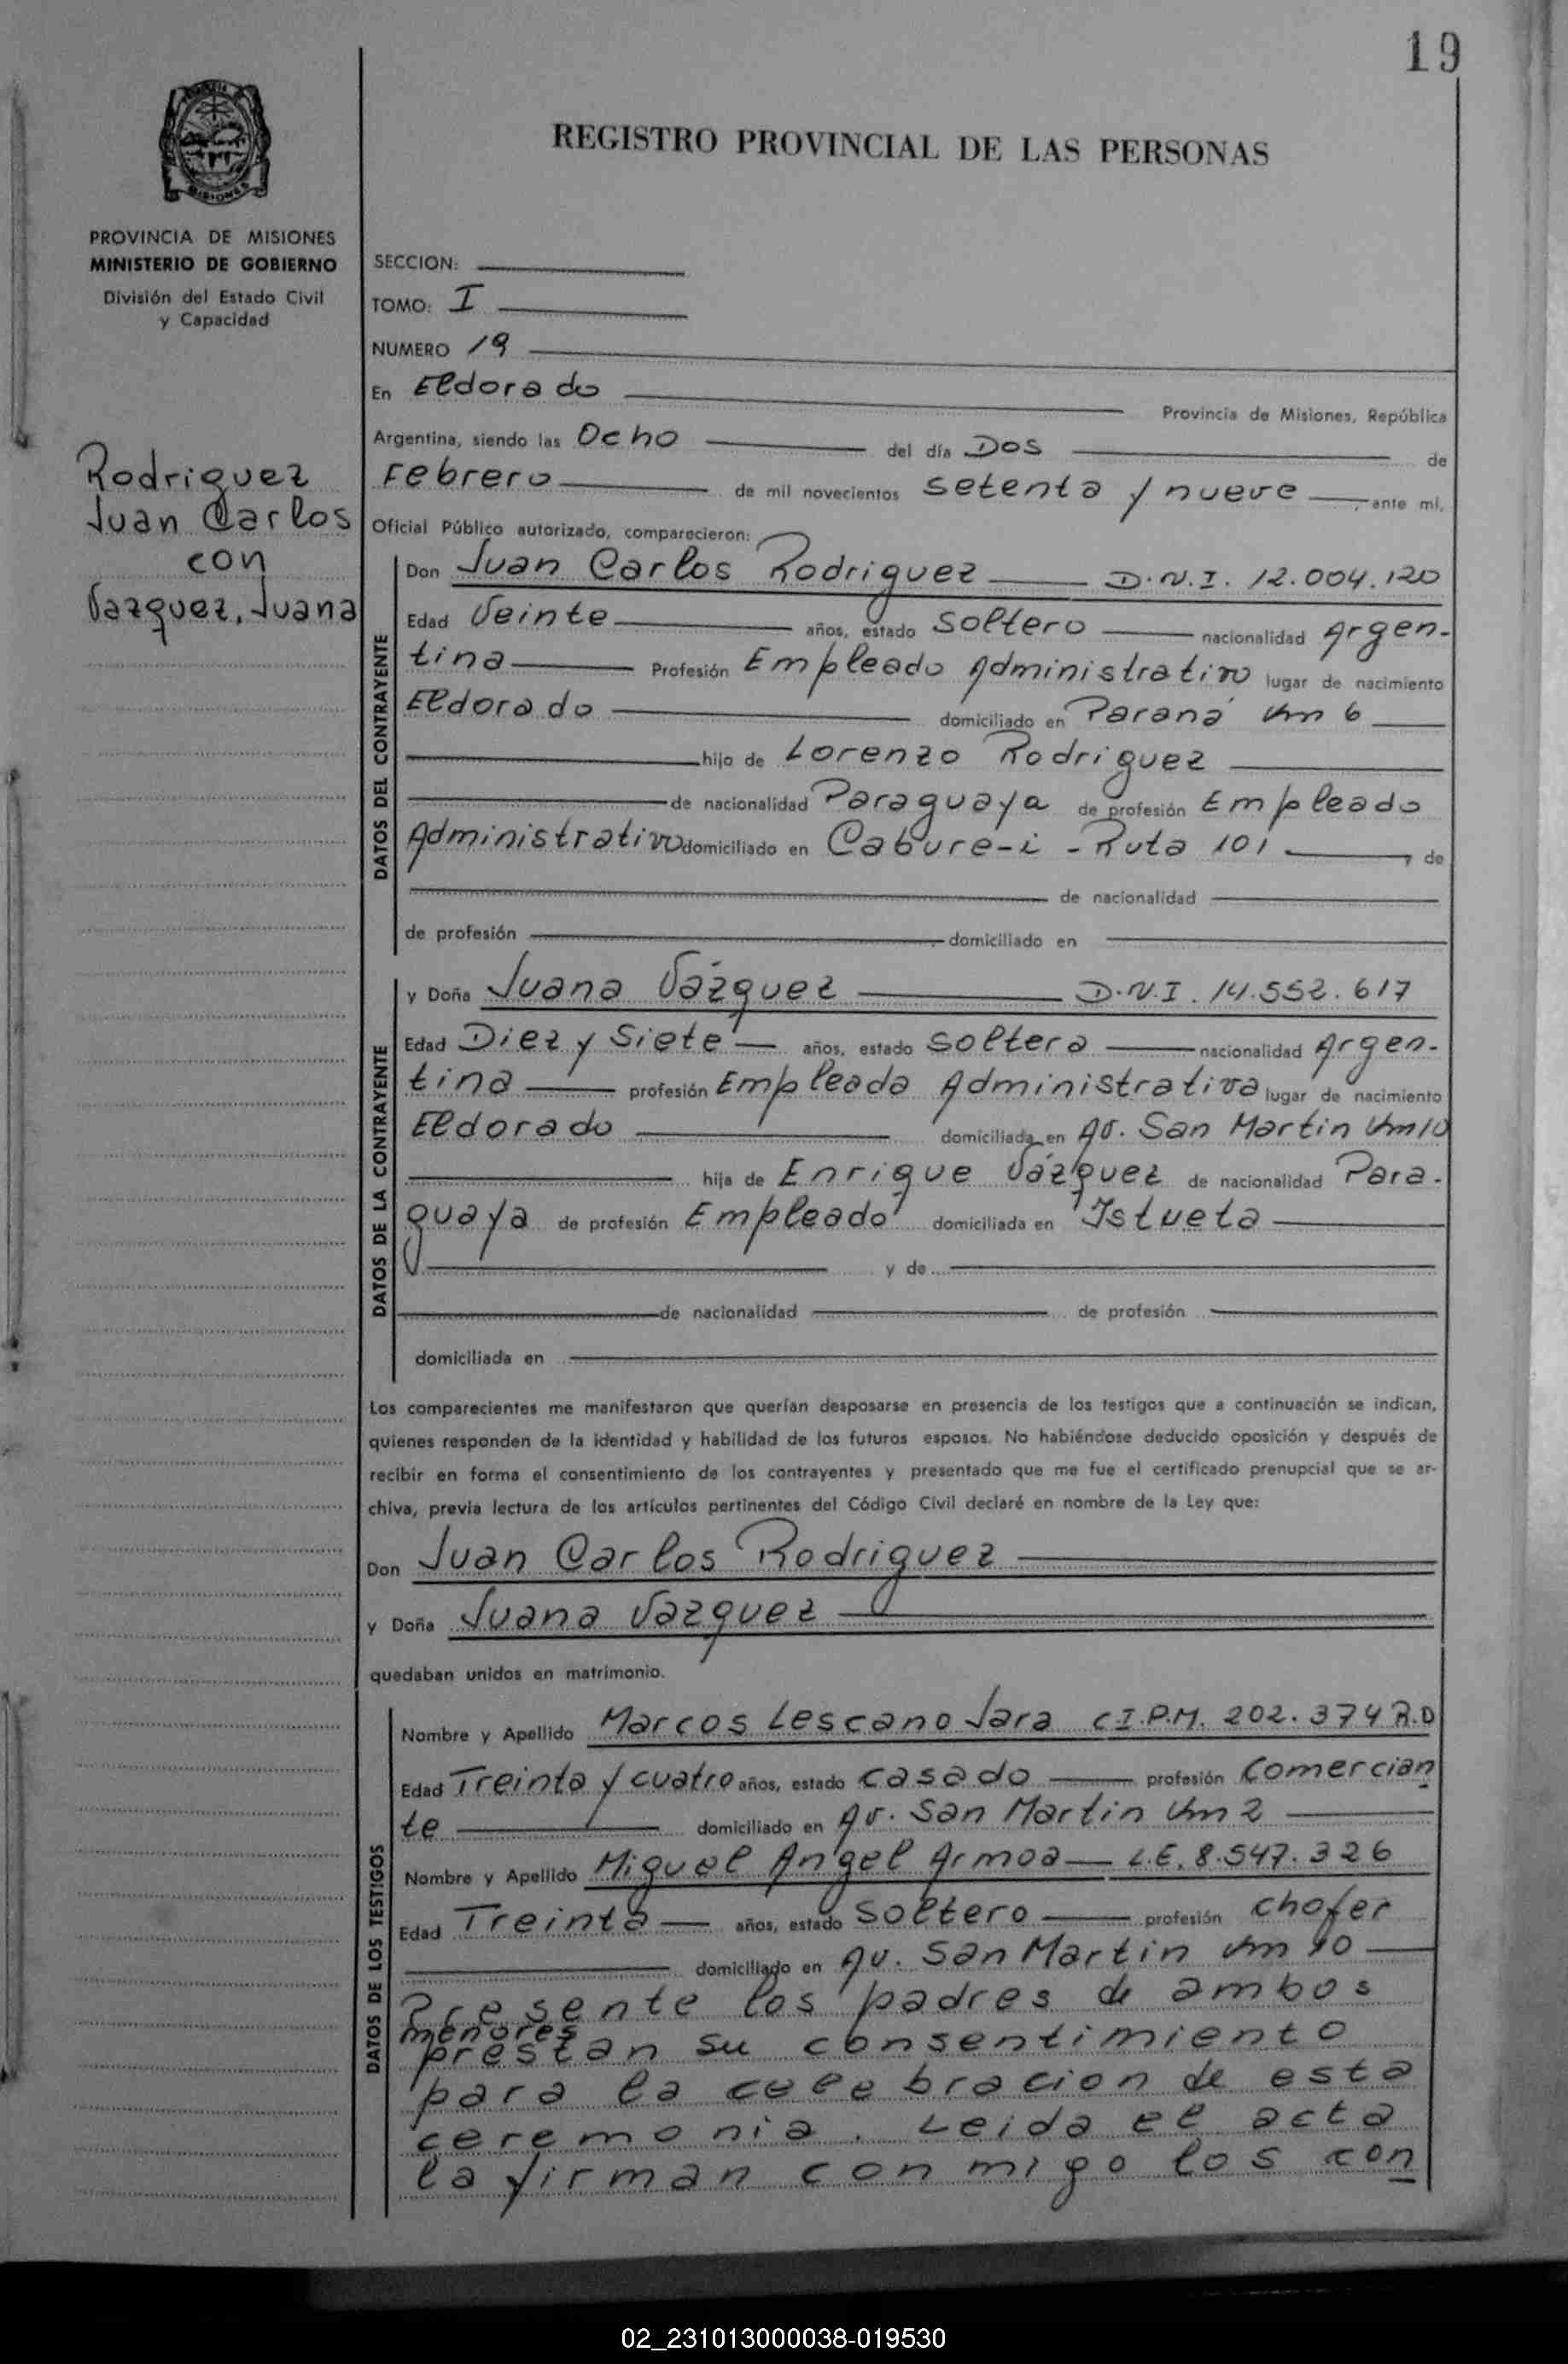 19
REGISTRO PROVINCIAL DE LAS PERSONAS
MISIONES
PROVINCIA DE MISIONES
MINISTERIO DE GOBIERNO
División del Estado Civil
y Capacidad
SECCION:
TOMO: I
NUMERO 19
En Eldorado Provincia de Misiones, República
Argentina, siendo las Ocho del día Dos de
Febrero de mil novecientos setenta y nueve, ante mí,
Oficial Público autorizado, comparecieron:
Rodriguez
Juan Carlos
con
Vazquez, Juana
DATOS DEL CONTRAYENTE
Don Juan Carlos Rodriguez D.N.I. 12.004.120
Edad Veinte años, estado Soltero nacionalidad Argen-
tina Profesión Empleado Administrativo lugar de nacimiento
Eldorado domiciliado en Paraná Km 6
hijo de Lorenzo Rodriguez
de nacionalidad Paraguaya de profesión Empleado
Administrativo domiciliado en Cabure-i - Ruta 101, de
de nacionalidad
de profesión domiciliado en
DATOS DE LA CONTRAYENTE
y Doña Juana Vázquez D.N.I. 14.552.617
Edad Diez y Siete años, estado Soltera nacionalidad Argen-
tina profesión Empleada Administrativa lugar de nacimiento
Eldorado domiciliada en Av. San Martin Km 10
hija de Enrique Vázquez de nacionalidad Para-
guaya de profesión Empleado domiciliada en Istueta
y de
de nacionalidad de profesión
domiciliada en
Los comparecientes me manifestaron que querían desposarse en presencia de los testigos que a continuación se indican,
quienes responden de la identidad y habilidad de los futuros esposos. No habiéndose deducido oposición y después de
recibir en forma el consentimiento de los contrayentes y presentado que me fue el certificado prenupcial que se ar-
chiva, previa lectura de los artículos pertinentes del Código Civil declaré en nombre de la Ley que:
Don Juan Carlos Rodriguez
y Doña Juana Vazquez
quedaban unidos en matrimonio.
DATOS DE LOS TESTIGOS
Nombre y Apellido Marcos Lescano Jara C.I.P.M. 202.374 R.D
Edad Treinta y cuatro años, estado casado profesión Comercian
te domiciliado en Av. San Martin Km 2
Nombre y Apellido Miguel Angel Armoa L.E. 8.547.326
Edad Treinta años, estado soltero profesión chofer
domiciliado en Av. San Martin Km 10
Presente los padres de ambos
menores
prestan su consentimiento
para la celebracion de esta
ceremonia. Leida el acta
la firman conmigo los con
02_231013000038-019530